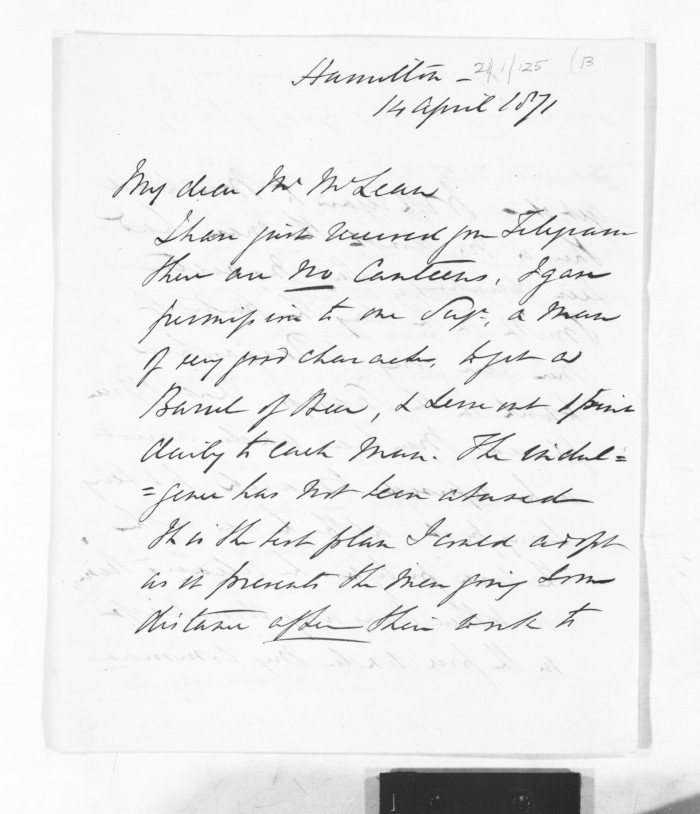 Hamilton - 21/1/125 (B
14 April 1871
My dear Mr McLean
I have just received your Telegram
there are No Canteens, I gave
permission to one Sergt, a man
of very good character, to get a
Barrel of Beer, & serve out 1 pint
daily to each man. The indul=
=gence has not been abused
It is the best plan I could adopt
as it prevents the men going some
distance after their work to